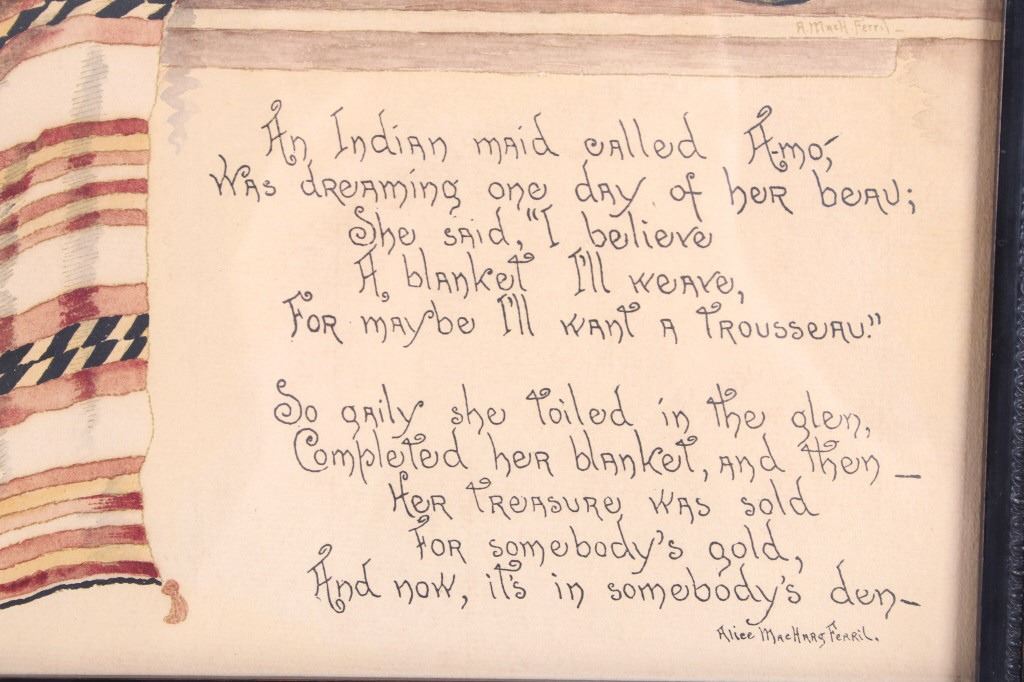 A MacH Ferril -
An Indian maid called A-mo,
Was dreaming one day of her beau;
She said, "I believe
A blanket I'll weave,
For maybe I'll want a trousseau."
So gaily she toiled in the glen,
Completed her blanket, and then -
Her treasure was sold
For somebody's gold,
And now, it's in somebody's den-
Alice MacHarg Ferril.